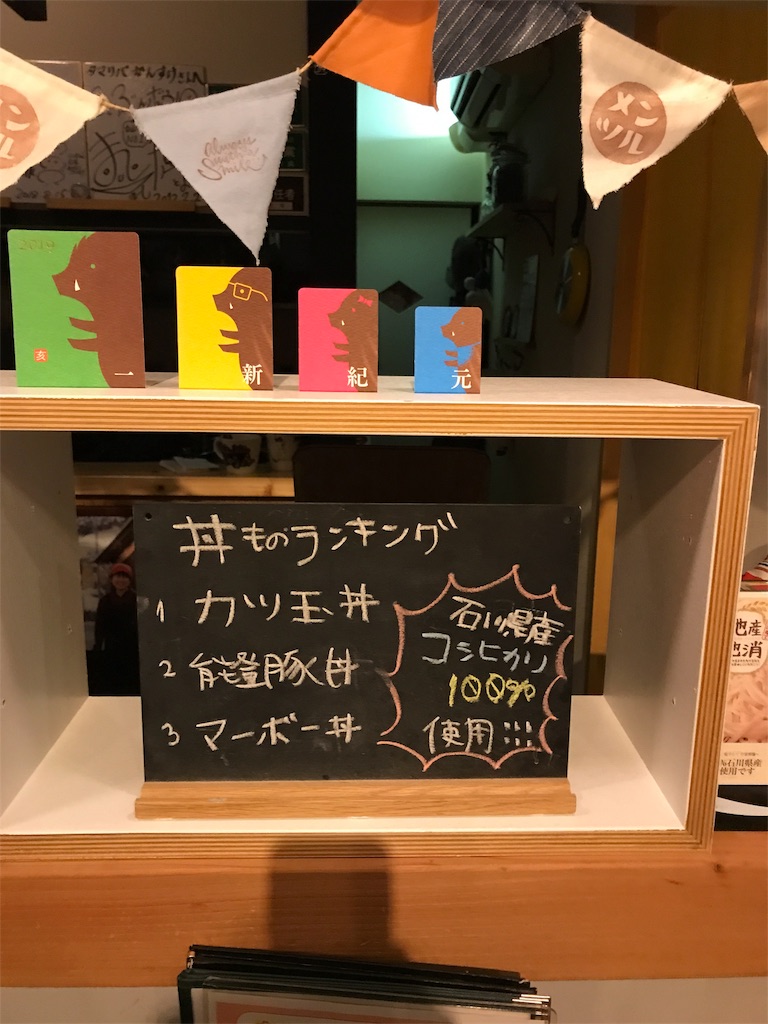 タマリバ
メン
ツル
Always
Smile
メン
ツル
2019
亥
一
新
紀
元
丼ものランキング
1 カツ玉丼
2 能登豚丼
3 マーボー丼
石川県産
コシヒカリ
100%
使用!!!
地産
地消
%石川県産
使用です